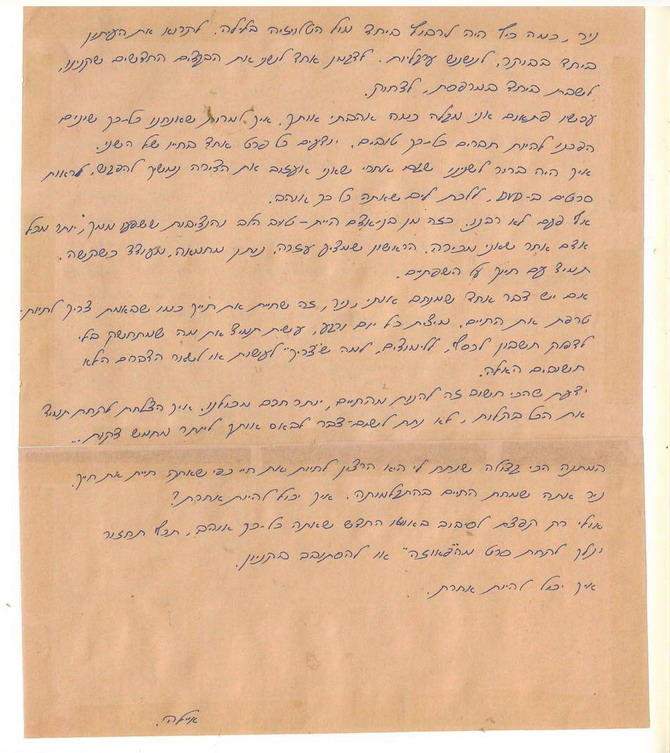 ניר, כמה כיף היה לרבוץ ביחד מול הטלויזיה בלילה. לקרוא את העיתון
ביחד בבוקר, לנשנש עוגיות. לדגמן אחד לשני את הבגדים החדשים שקנינו,
לשבת ביחד במרפסת, לצחוק.
עכשו פתאום אני מגלה כמה אהבתי אותך. איך למרות שאנחנו כל-כך שונים
הפכנו להיות חברים כל-כך טובים. יודעים כל פרט אחד בחייו של השני.
איך היה ברור לשנינו שגם אחרי שאני אעזוב את הדירה נמשיך להפגש, לראות
סרטים ב-DVD, ללכת לים שאתה כל כך אוהב.
אף פעם לא רבנו. כזה מן בן-אדם היית - טוב הלב והנדיבות ששפעו ממך, יותר מכל
אדם אחר שאני מכירה. הראשון שמציע עזרה, נותן מחמאה, מעודד כשקשה.
תמיד עם חיוך על השפתיים.
אם יש דבר אחד שמנחם אותי, ניר, זה שחיית את חייך כמו שבאמת צריך לחיות-
טרפת את החיים. מיצית כל יום ורגע, עשית תמיד את מה שמתחשק בלי
לדפוק חשבון לכסף, ללימודים, למה ש"צריך" לעשות או לשאר הדברים הלא
חשובים האלה.
ידעת שהכי חשוב זה להנות מהחיים, יותר חכם מכולנו. איך הצלחת לקחת תמיד
את הכל בקלות, לא נתת לשום-דבר לבאס אותך ליותר מחמש דקות...
המתנה הכי גדולה שנתת לי היא הרצון לחיות את חיי כפי שאתה חיית את חייך.
ניר אתה שמחת החיים בהתגלמותה. איך יכול להיות אחרת?
אולי רק קפצת לסיבוב באוטו החדש שאתה כל-כך אוהב, תכף תחזור
ונלך לקחת סרט מה"אוזה" או להסתובב בקניון.
איך יכול להיות אחרת.
איילה.